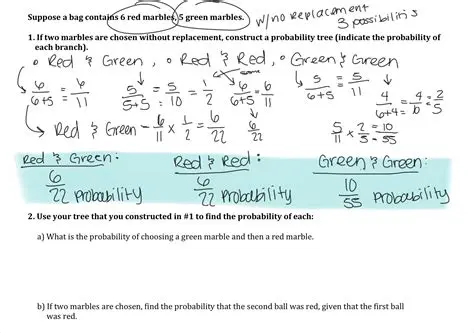 Suppose a bag contains 6 red marbles, 5 green marbles. w/no replacement
3 possibilitis
1. If two marbles are chosen without replacement, construct a probability tree (indicate the probability of
each branch).
• Red & Green, • Red & Red, • Green & Green
6/6+5 = 6/11 5/5+5 = 5/10 = 1/2 same 6/6+5 = 6/11 5/6+5 = 5/11 4/6+4 = 4/10 = 2/5
Red & Green - 6/11 x 1/2 = 6/22 6/22 5/11 x 2/5 = 10/55
Red & Green: Red & Red: Green & Green:
6/22 Probability 6/22 Probability 10/55 Probability
2. Use your tree that you constructed in #1 to find the probability of each:
a) What is the probability of choosing a green marble and then a red marble.
b) If two marbles are chosen, find the probability that the second ball was red, given that the first ball
was red.